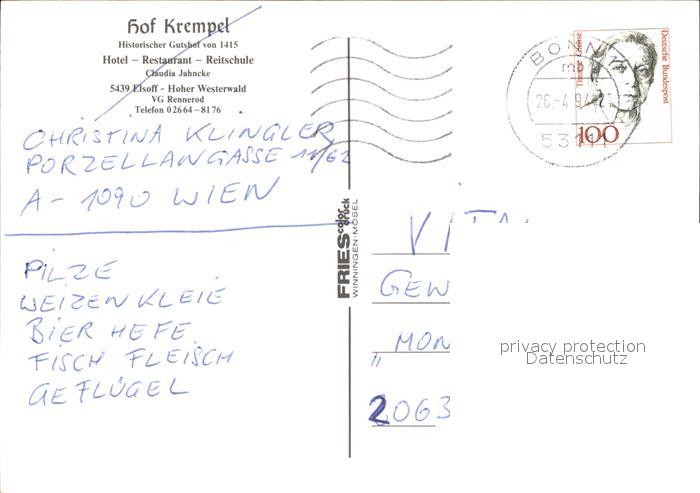 Hof Krempel
Historischer Gutshof von 1415
Hotel – Restaurant – Reitschule
Claudia Jahncke
5439 Elsoff - Hoher Westerwald
VG Rennerod
Telefon 02664-8176
CHRISTINA KLINGLER
PORZELLANGASSE 11/62
A - 1090 WIEN
PILZE
WEIZENKLEIE
BIER HEFE
FISCH FLEISCH
GEFLÜGEL
FRIES color druck
WINNINGEN-MOSEL
BONN
mb
26.-4.94
5311
Deutsche Bundespost
100
GEW
„MON
2063
privacy protection
Datenschutz